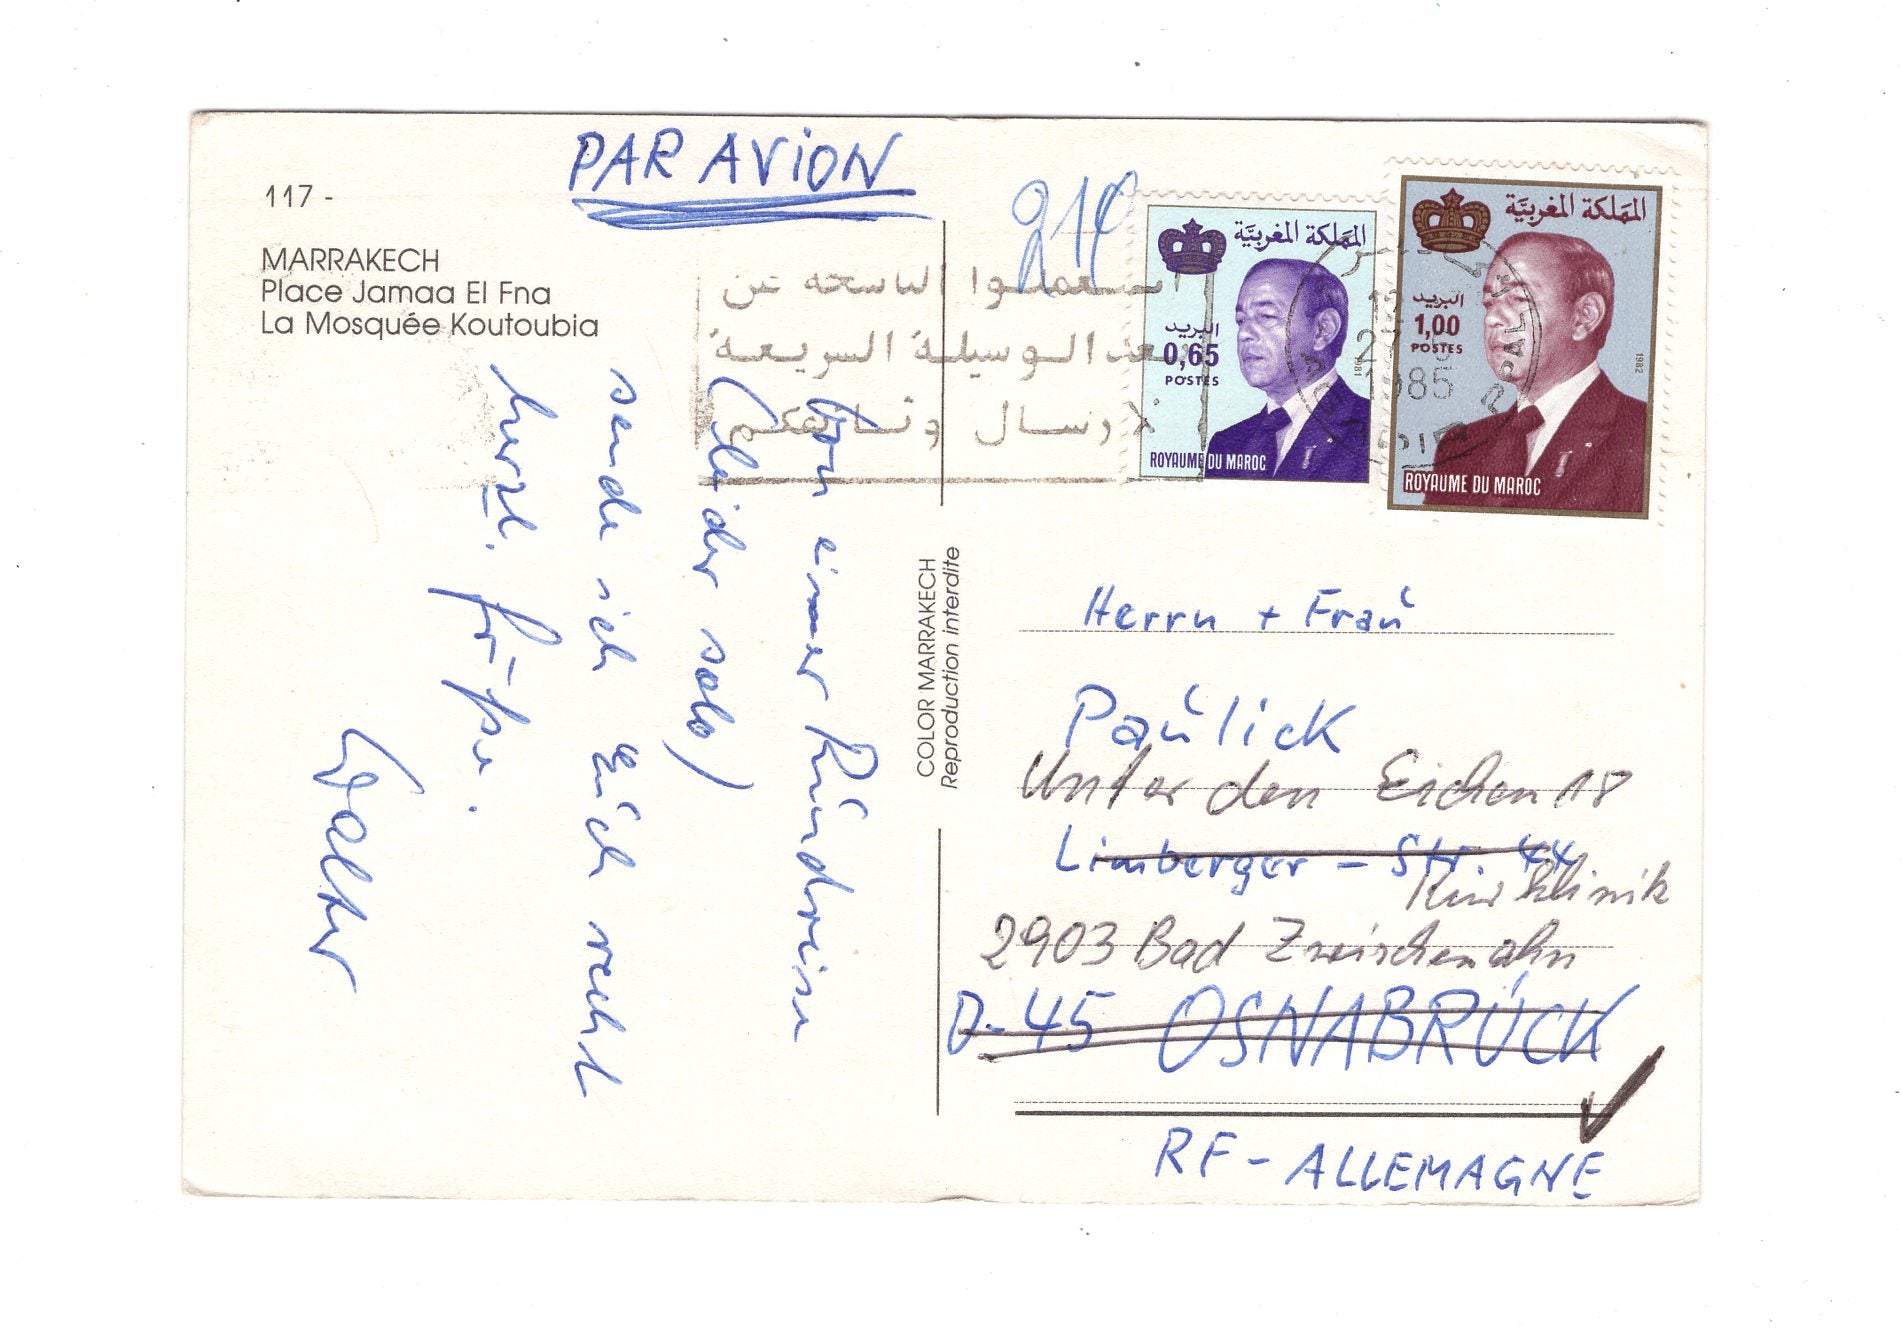 PAR AVION
117 -
MARRAKECH
Place Jamaa El Fna
La Mosquée Koutoubia
Von einer Rundreise
(leider solo)
sende ich Euch recht
herzl. Grüße.
Walter
COLOR MARRAKECH
Reproduction interdite
المملكة المغربية
البريد
0,65
POSTES
1981
ROYAUME DU MAROC
المملكة المغربية
البريد
1,00
POSTES
1982
ROYAUME DU MAROC
1985
الوسيلة السريعة
Herrn + Frau
Paulick
Unter den Eichen 18
Limberger - Str. 44
Kurklinik
2903 Bad Zwischenahn
D-45 OSNABRÜCK
RF - ALLEMAGNE